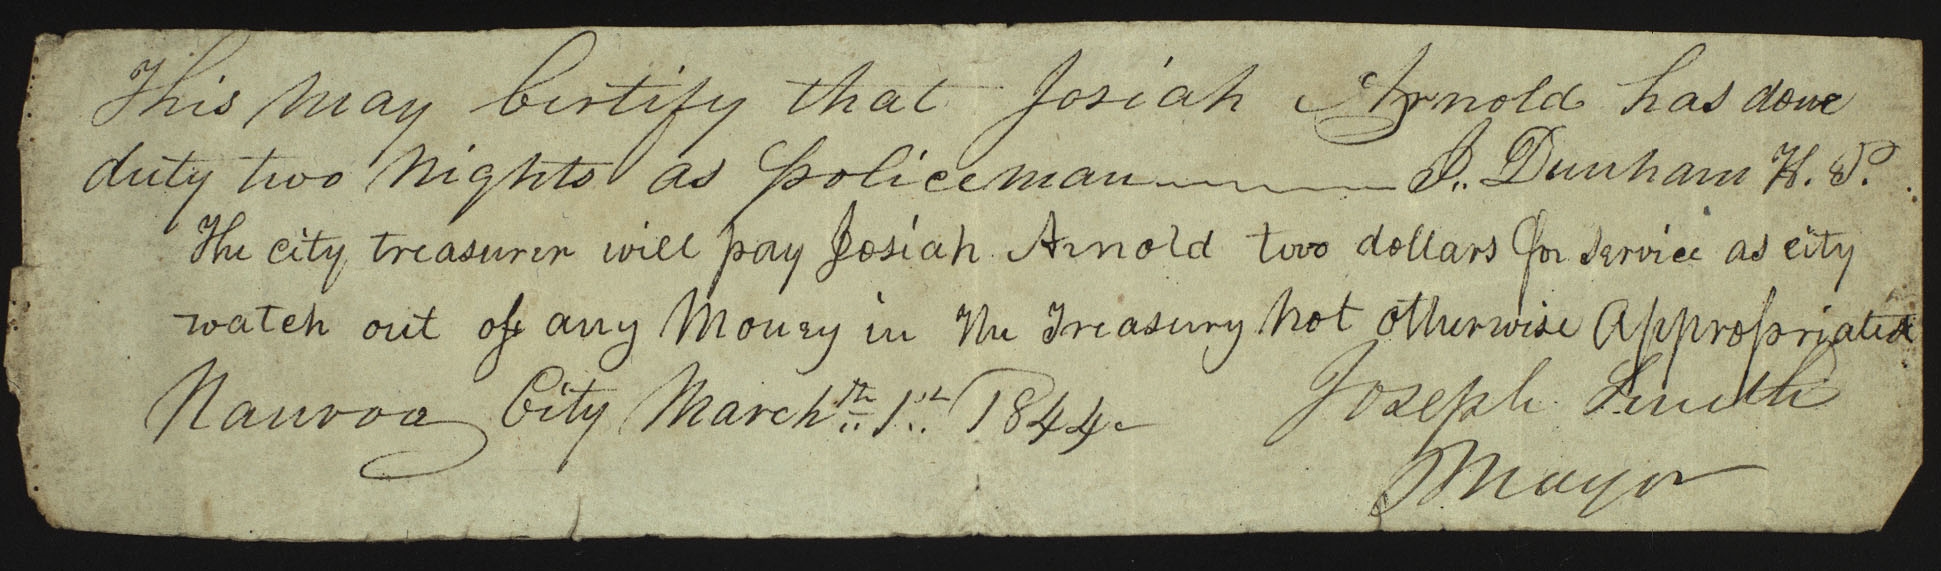 This may Certify that Josiah Arnold has done
duty two Nights as policeman J. Dunham H. P.
The city treasurer will pay Josiah Arnold two dollars for service as city
watch out of any Money in The Treasury Not otherwise Appropriated
Nauvoo City March th 1st 1844
Joseph Smith
Mayor